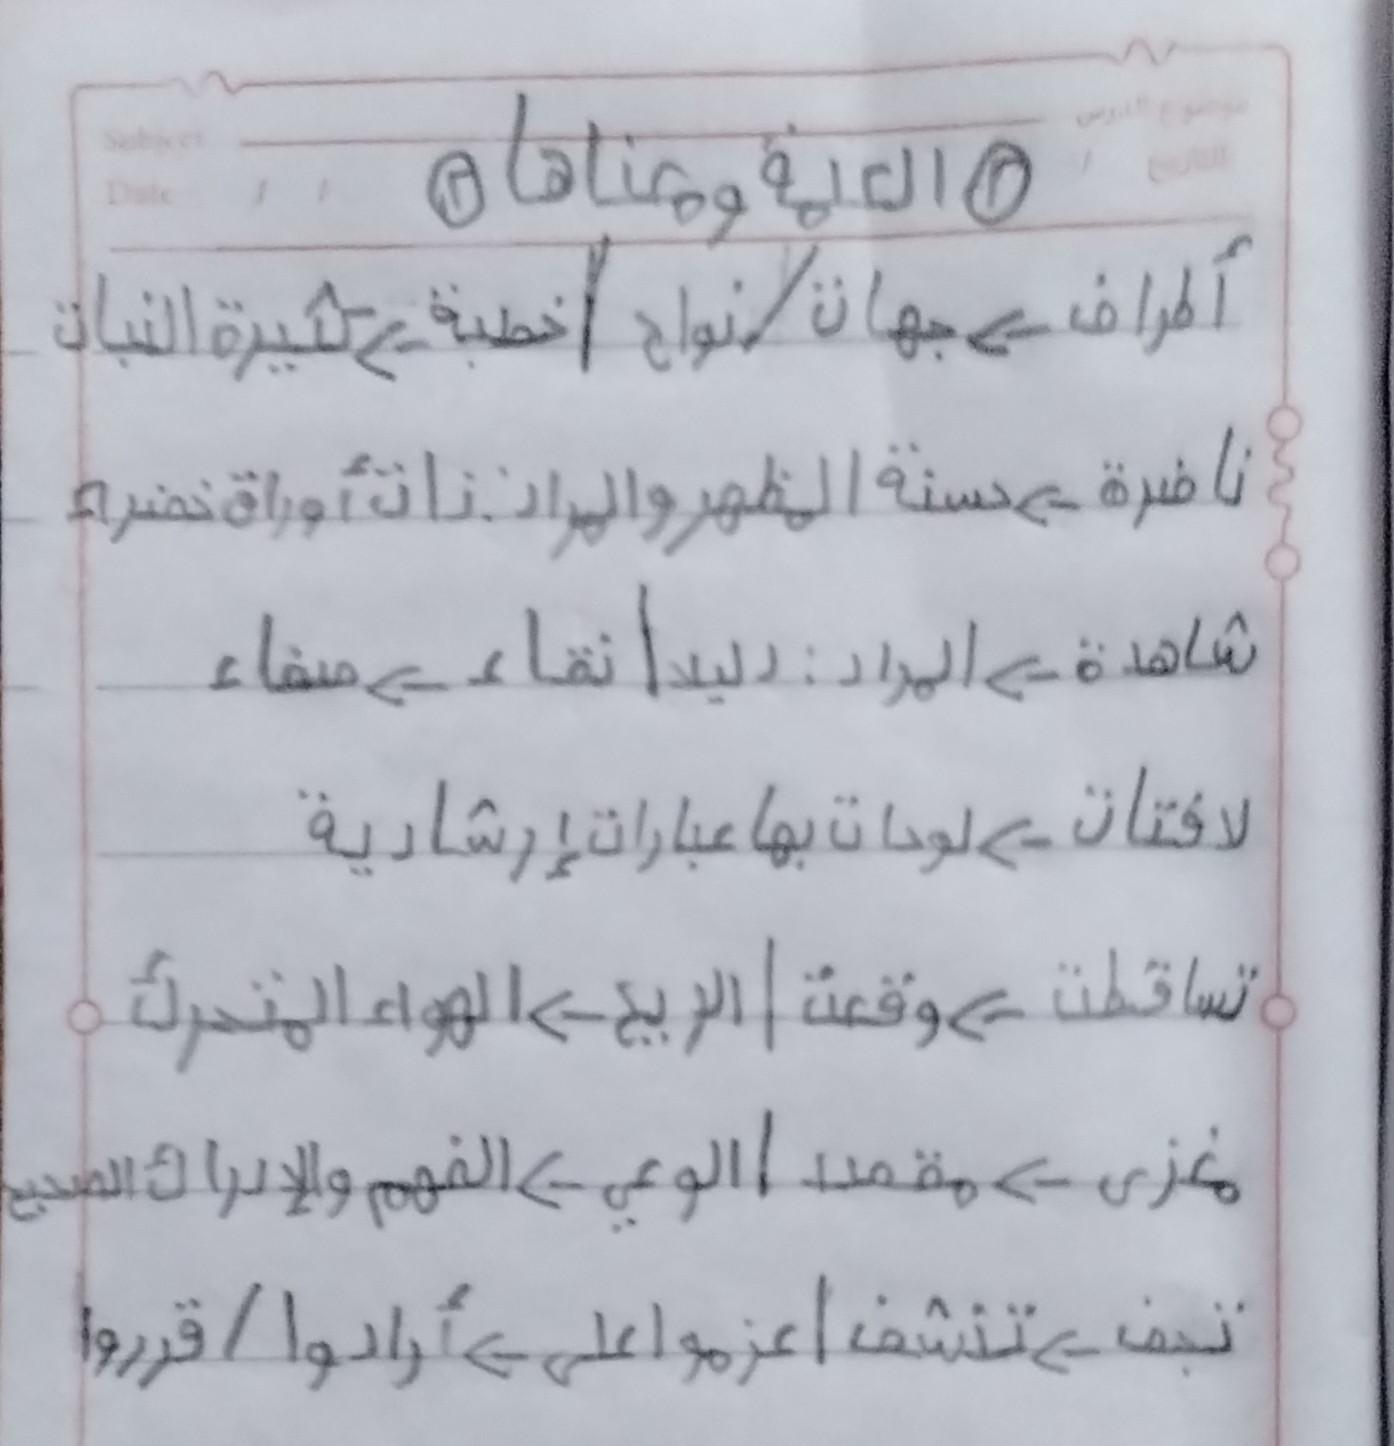 Subject موضوع الدرس
Date / / التاريخ /
② الكلمة ومعناها ②
أطراف -> جهات / نواح / خصبة -> كثيرة النبات
ناضرة -> حسنة المظهر والمراد: ذات أوراق خضراء
شاهدة -> المراد: دليد / نقاء -> صفاء
لافتات -> لوحات بها عبارات إرشادية
تساقطت -> وقعت / الريح -> الهواء المتحرك
مغزى -> مقصد / الوعي -> الفهم والإدراك الصحيح
تجف -> تنشف / عزموا على -> أرادوا / قرروا